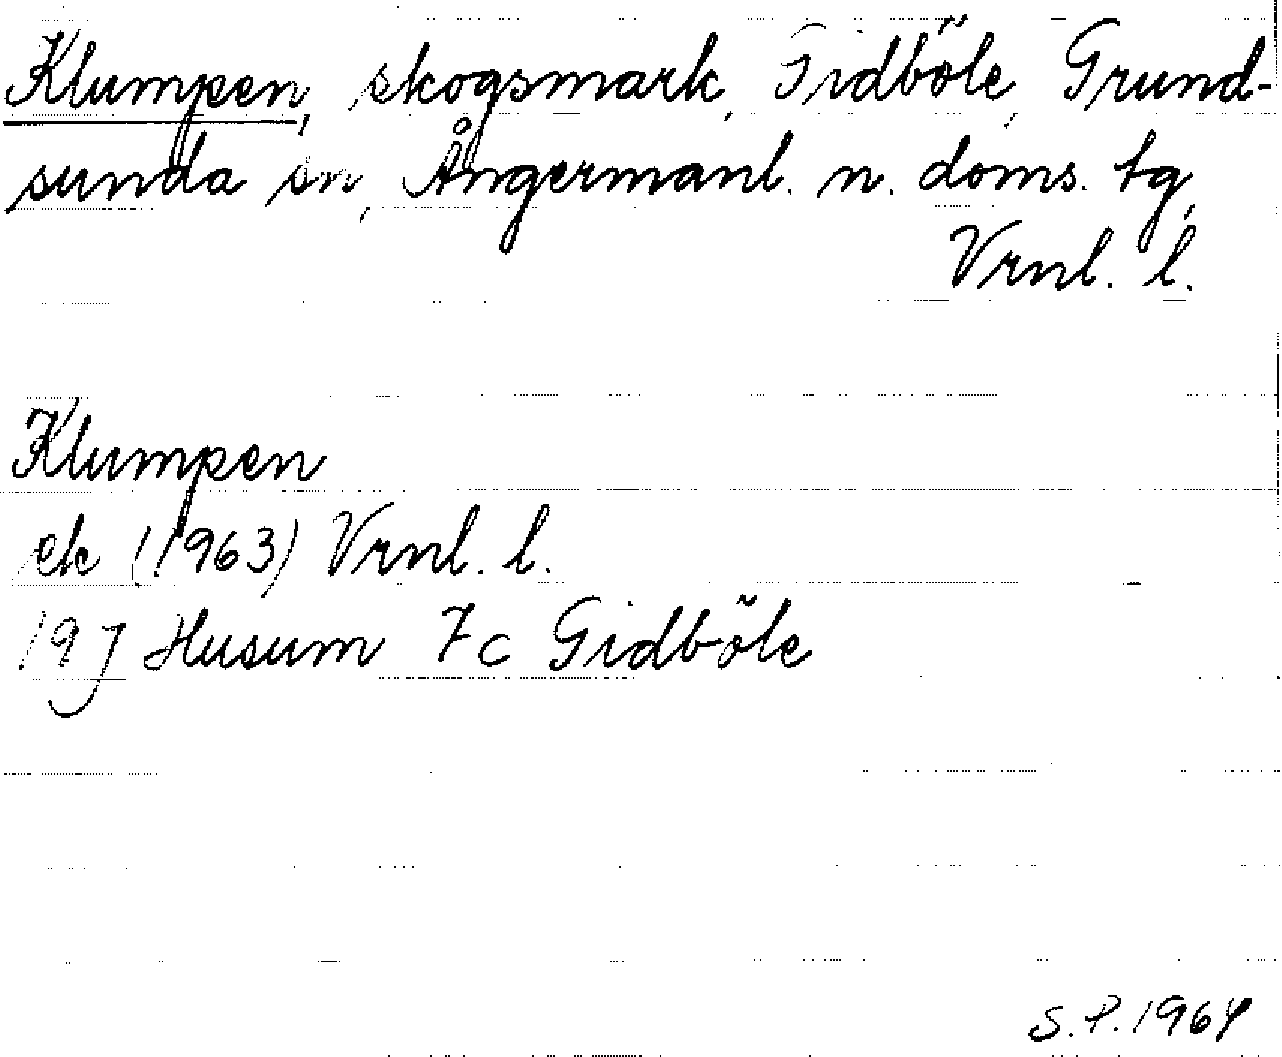 Klumpen, skogsmark, Gidböle, Grund-
sunda sn, Ångermanl. n. doms. tg,
Vrnl. l.
Klumpen
ek (1963) Vrnl. l.
19 J Husum 7c Gidböle
S.P. 1964